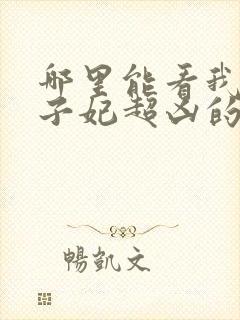 哪里能看我
子妃超凶的
暢凱文